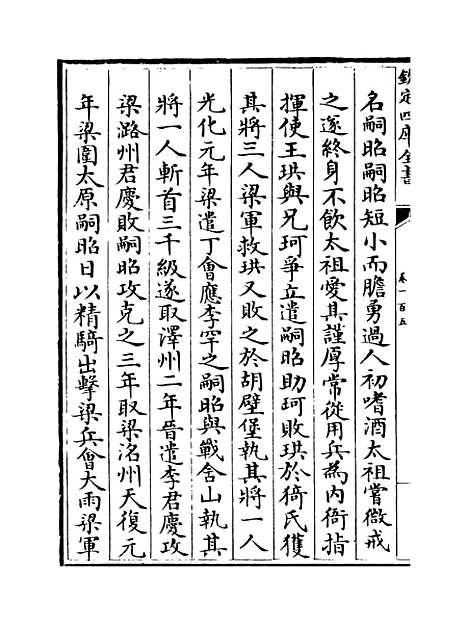 欽定四庫全書
卷一百五
名嗣昭嗣昭短小而膽勇過人初嗜酒太祖嘗微戒
之遂終身不飲太祖愛其謹厚常從用兵為内衙指
揮使王珙與兄珂爭立遣嗣昭助珂敗珙於猗氏獲
其將三人梁軍救珙又敗之於胡壁堡執其將一人
光化元年梁遣丁會應李罕之嗣昭與戰含山執其
將一人斬首三千級遂取澤州二年晉遣李君慶攻
梁潞州君慶敗嗣昭攻克之三年取梁洺州天復元
年梁圍太原嗣昭日以精騎出擊梁兵會大雨梁軍